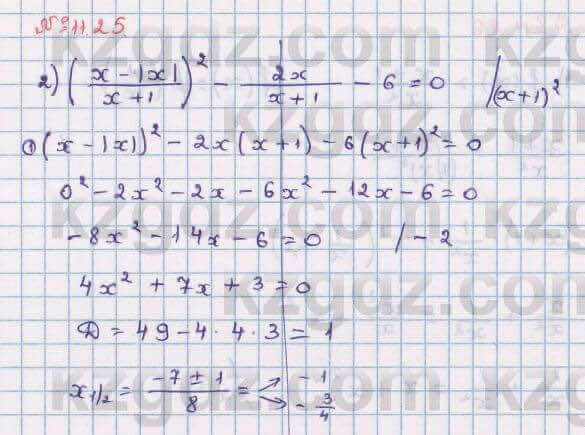 № 11.25
2) ((x - |x|)/(x + 1))² - 2x/(x + 1) - 6 = 0 /(x+1)²
① (x - |x|)² - 2x(x + 1) - 6(x + 1)² = 0
0² - 2x² - 2x - 6x² - 12x - 6 = 0
-8x² - 14x - 6 = 0 / - 2
4x² + 7x + 3 = 0
D = 49 - 4 · 4 · 3 = 1
x₁/₂ = (-7 ± 1)/8 = ↗ -1 ↘ -3/4
kzgdz.com